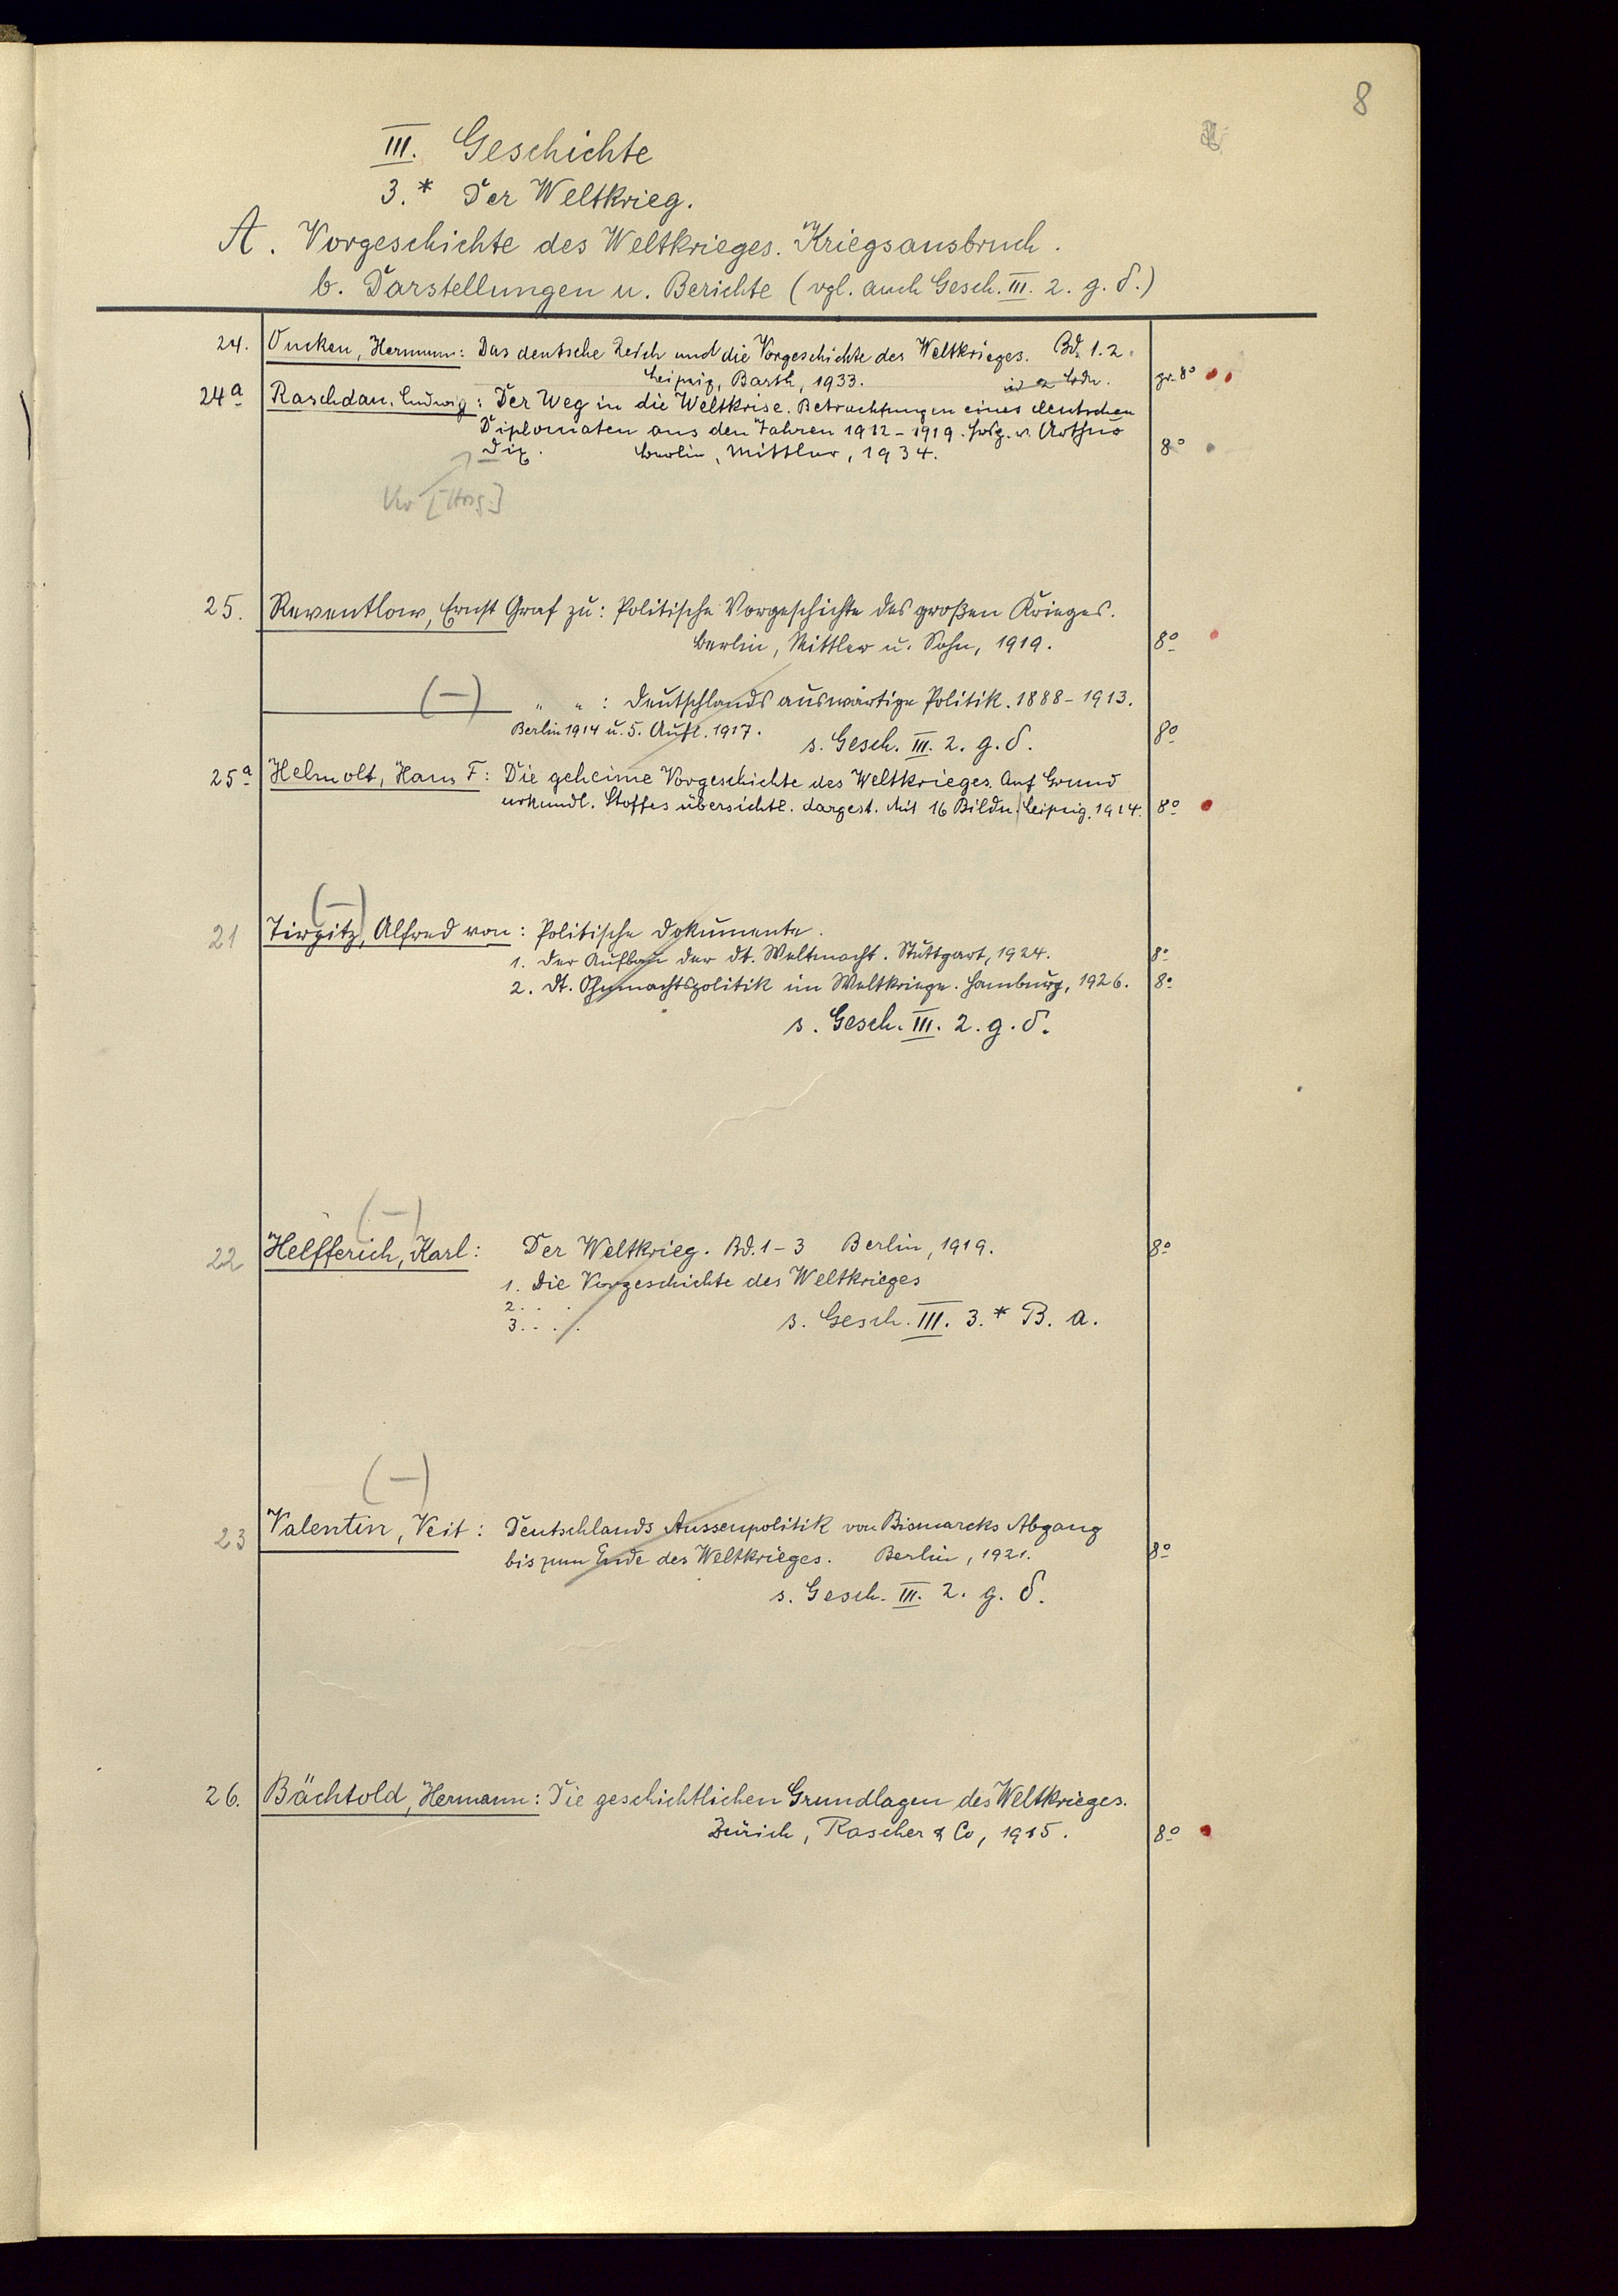 8
III. Geschichte
3.* Der Weltkrieg.
A. Vorgeschichte des Weltkrieges. Kriegsausbruch.
b. Darstellungen u. Berichte (vgl. auch Gesch. III. 2. g. δ.)
24. Oncken, Hermann: Das deutsche Reich und die Vorgeschichte des Weltkrieges. Bd. 1. 2.
Leipzig, Barth, 1933. in 2 Bdn. gr. 8°
24a Raschdau, Ludwig: Der Weg in die Weltkrise. Betrachtungen eines deutschen
Diplomaten aus den Jahren 1912-1919. Hrsg. v. Arthur
Dix. Berlin, Mittler, 1934. 8°
[Hrsg.]
25. Reventlow, Ernst Graf zu: Politische Vorgeschichte des großen Krieges.
Berlin, Mittler u. Sohn, 1919. 8°
(-) " " : Deutschlands auswärtige Politik. 1888-1913.
Berlin 1914 u. 5. Aufl. 1917. s. Gesch. III. 2. g. δ. 8°
25a Helmolt, Hans F: Die geheime Vorgeschichte des Weltkrieges. Auf Grund
urkundl. Stoffes übersichtl. dargest. Mit 16 Bildn. Leipzig, 1914. 8°
(-)
21 Tirpitz, Alfred von: Politische Dokumente.
1. Der Aufbau der dt. Weltmacht. Stuttgart, 1924. 8°
2. Dt. Ohnmachtspolitik im Weltkriege. Hamburg, 1926. 8°
s. Gesch. III. 2. g. δ.
(-)
22 Helfferich, Karl: Der Weltkrieg. Bd. 1-3 Berlin, 1919. 8°
1. Die Vorgeschichte des Weltkrieges
2. . .
3. . . . s. Gesch. III. 3.* B. a.
(-)
23 Valentin, Veit: Deutschlands Aussenpolitik von Bismarcks Abgang
bis zum Ende des Weltkrieges. Berlin, 1921. 8°
s. Gesch. III. 2. g. δ.
26. Bächtold, Hermann: Die geschichtlichen Grundlagen des Weltkrieges.
Zürich, Rascher & Co, 1915. 8°